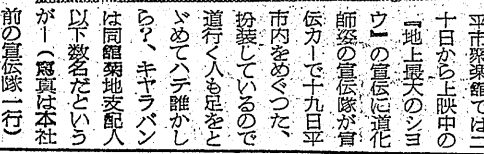 平市聚楽館では二
十日から上映中の
『地上最大のシヨ
ウ』の宣伝に道化
師姿の宣伝隊が宣
伝カーで十九日平
市内をめぐつた、
扮装しているので
道行く人も足をと
ゞめてハテ誰かし
ら?、キヤラバン
は同館菊地支配人
以下数名だという
がー(寫真は本社
前の宣伝隊一行)